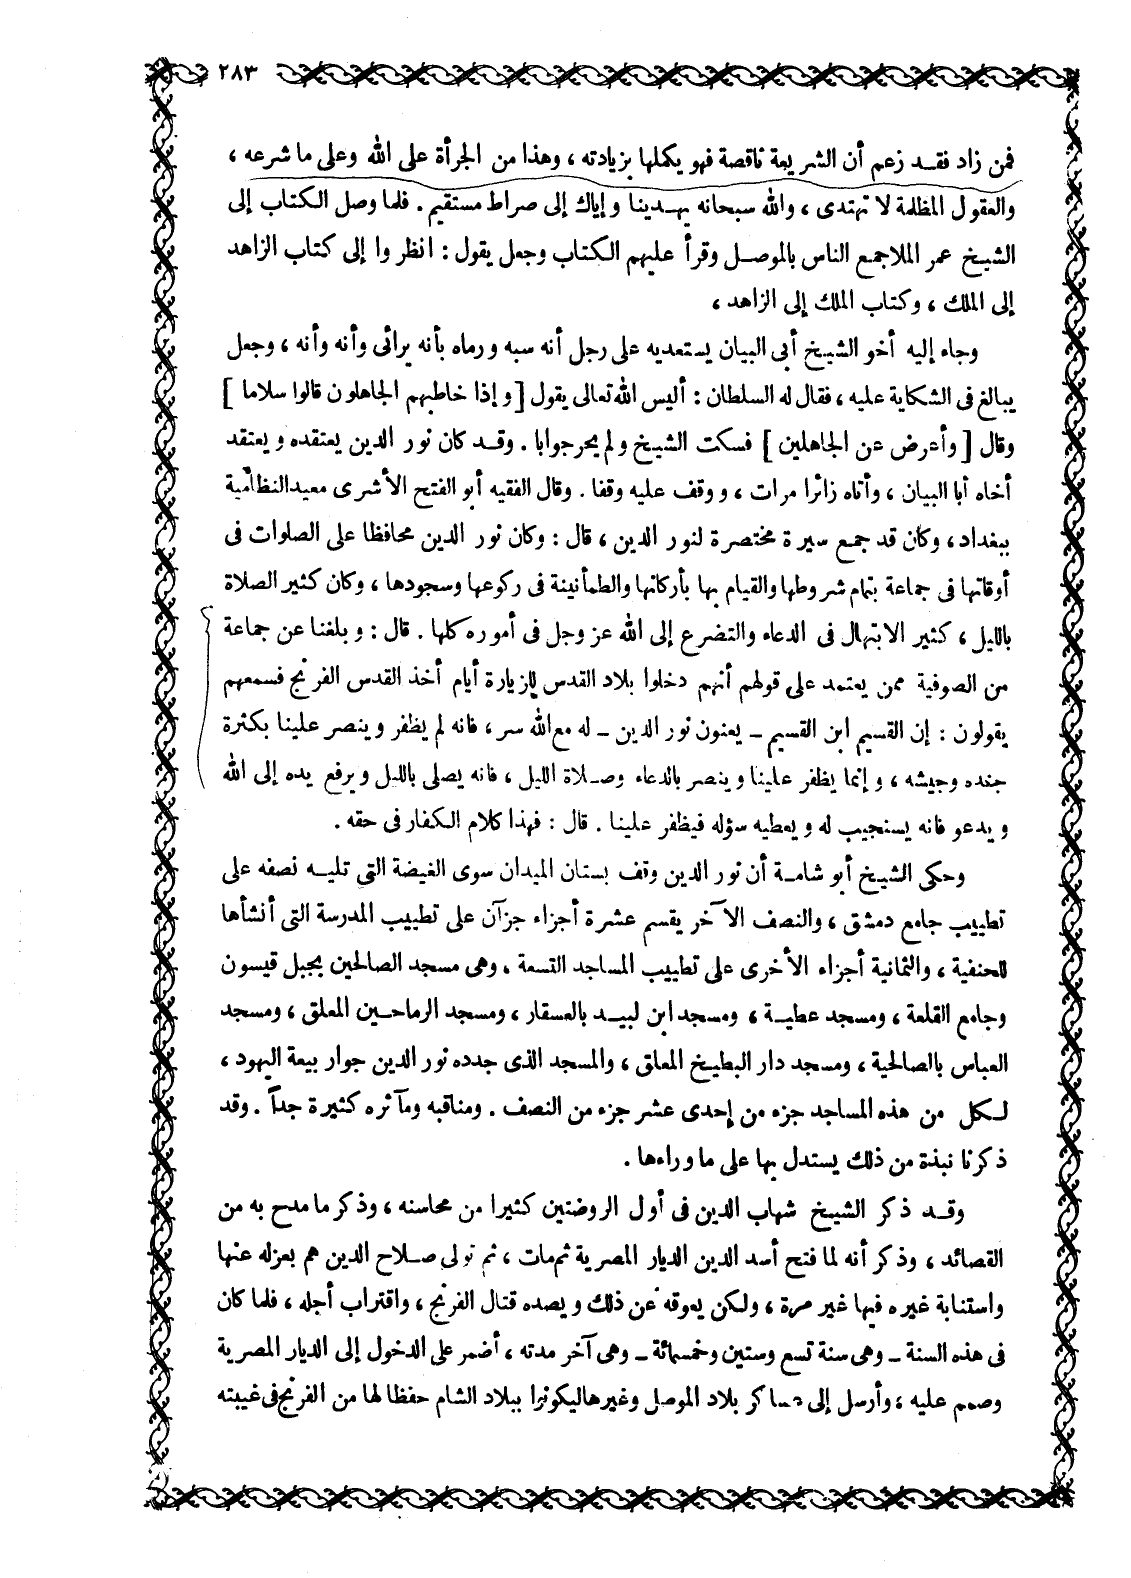 ٢٨٣
فمن زاد فقد زعم أن الشريعة ناقصة فهو يكملها بزيادته ، وهذا من الجرأة على الله وعلى ما شرعه ،
والعقول المظلمة لا تهتدى ، والله سبحانه يهدينا وإياك إلى صراط مستقيم . فلما وصل الكتاب إلى
الشيخ عمر الملا جمع الناس بالموصل وقرأ عليهم الكتاب وجعل يقول : انظروا إلى كتاب الزاهد
إلى الملك ، وكتاب الملك إلى الزاهد ،
وجاء إليه أخو الشيخ أبى البيان يستعديه على رجل أنه سبه ورماه بأنه يرائى وأنه وأنه ، وجعل
يبالغ فى الشكاية عليه ، فقال له السلطان : أليس الله تعالى يقول [ وإذا خاطبهم الجاهلون قالوا سلاما ]
وقال [ وأعرض عن الجاهلين ] فسكت الشيخ ولم يحر جوابا . وقد كان نور الدين يعتقده ويعتقد
أخاه أبا البيان ، وأتاه زائرا مرات ، ووقف عليه وقفا . وقال الفقيه أبو الفتح الأشرى معيد النظامية
ببغداد ، وكان قد جمع سيرة مختصرة لنور الدين ، قال : وكان نور الدين محافظا على الصلوات فى
أوقاتها فى جماعة بتمام شروطها والقيام بها بأركانها والطمأنينة فى ركوعها وسجودها ، وكان كثير الصلاة
بالليل ، كثير الابتهال فى الدعاء والتضرع إلى الله عز وجل فى أموره كلها . قال : وبلغنا عن جماعة
من الصوفية ممن يعتمد على قولهم أنهم دخلوا بلاد القدس للزيارة أيام أخذ القدس الفرنج فسمعهم
يقولون : إن القسيم ابن القسيم ـ يعنون نور الدين ـ له مع الله سر ، فانه لم يظفر وينصر علينا بكثرة
جنده وجيشه ، وإنما يظفر علينا وينصر بالدعاء وصلاة الليل ، فانه يصلى بالليل ويرفع يده إلى الله
ويدعو فانه يستجيب له ويعطيه سؤله فيظفر علينا . قال : فهذا كلام الكفار فى حقه .
وحكى الشيخ أبو شامة أن نور الدين وقف بستان الميدان سوى الغيضة التى تليه نصفه على
تطييب جامع دمشق ، والنصف الآخر يقسم عشرة أجزاء جزآن على تطييب المدرسة التى أنشأها
للحنفية ، والثمانية أجزاء الأخرى على تطييب المساجد التسعة ، وهى مسجد الصالحين بجبل قيسون
وجامع القلعة ، ومسجد عطية ، ومسجد ابن لبيد بالعسقار ، ومسجد الرماحين المعلق ، ومسجد
العباس بالصالحية ، ومسجد دار البطيخ المعلق ، والمسجد الذى جدده نور الدين جوار بيعة اليهود ،
لكل من هذه المساجد جزء من إحدى عشر جزء من النصف . ومناقبه ومآثره كثيرة جداً . وقد
ذكرنا نبذة من ذلك يستدل بها على ما وراءها .
وقد ذكر الشيخ شهاب الدين فى أول الروضتين كثيرا من محاسنه ، وذكر ما مدح به من
القصائد ، وذكر أنه لما فتح أسد الدين الديار المصرية ثم مات ، ثم تولى صلاح الدين هم بعزله عنها
واستنابة غيره فيها غير مرة ، ولكن يعوقه عن ذلك ويصده قتال الفرنج ، واقتراب أجله ، فلما كان
فى هذه السنة ـ وهى سنة تسع وستين وخمسمائة ـ وهى آخر مدته ، أضمر على الدخول إلى الديار المصرية
وصمم عليه ، وأرسل إلى عساكر بلاد الموصل وغيرها ليكونوا ببلاد الشام حفظا لها من الفرنج فى غيبته